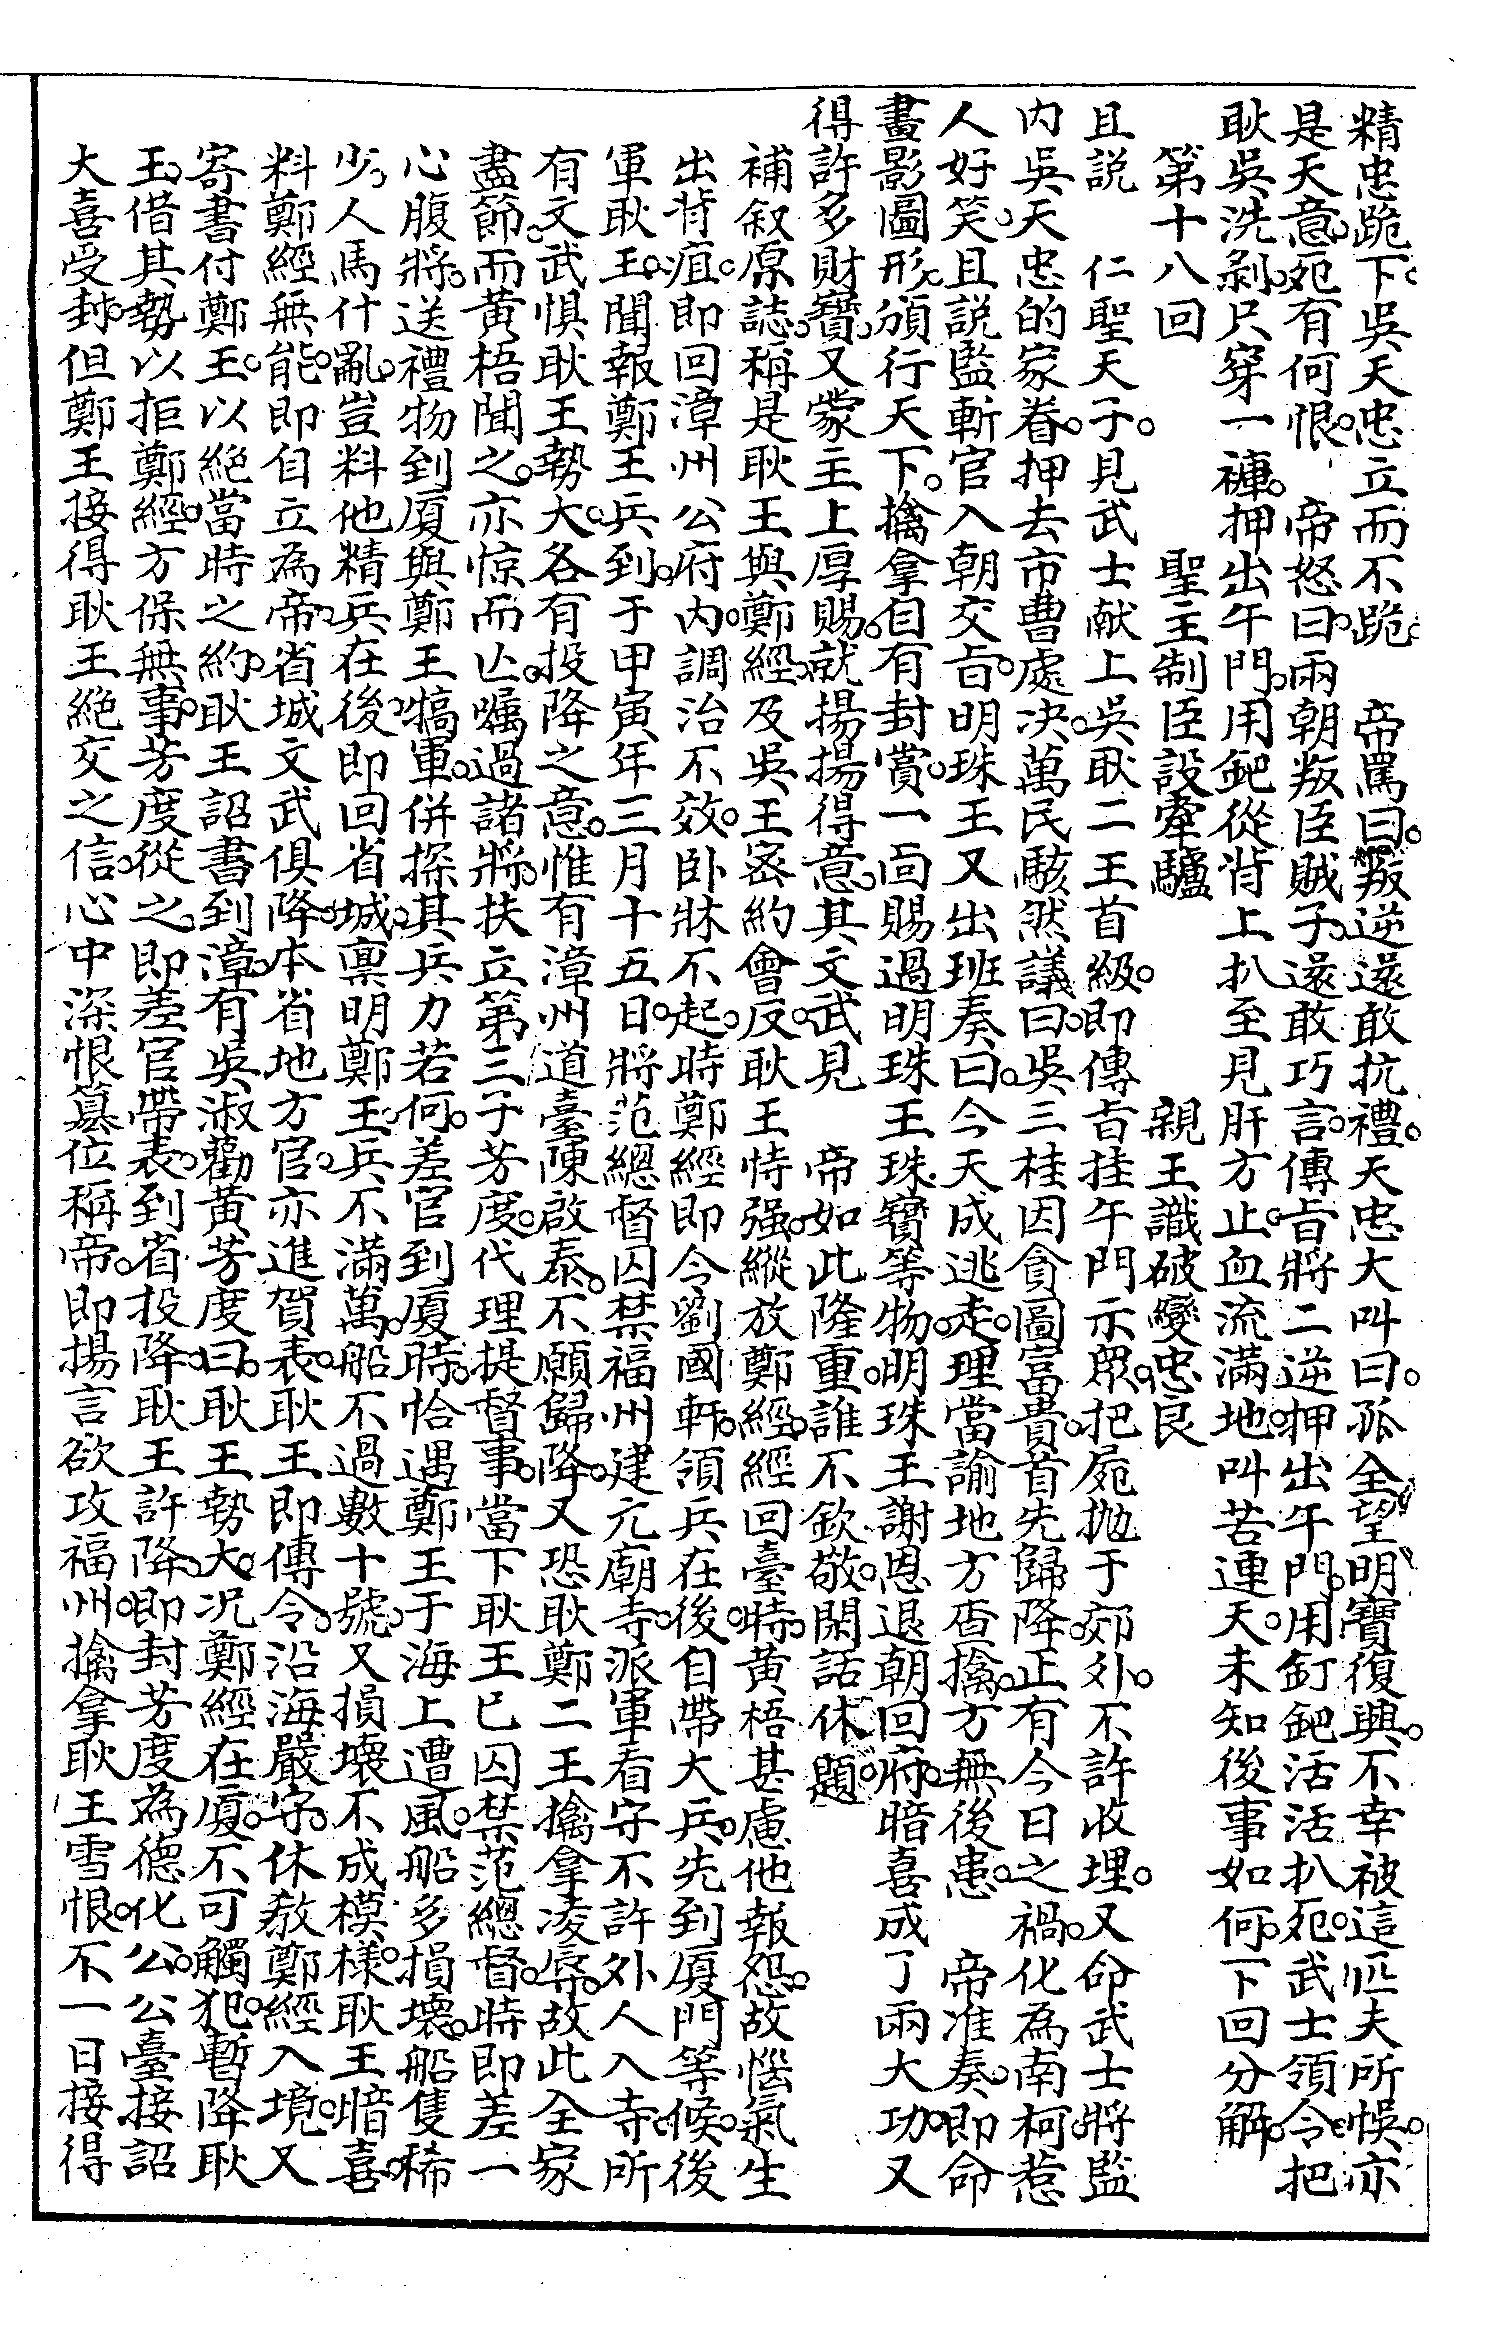 精忠跪下。吳天忠立而不跪　帝罵曰。叛逆遂敢抗禮。天忠大叫曰。孤全望明寶復興。不幸被這匹夫所悞。亦
是天意。死有何恨。　帝怒曰。兩朝叛臣賊子。遂敢巧言。傳旨將二逆押出午門。用釘鈀活活扒死。武士領令。把
耿吳洗剝。只穿一褲。押出午門。用鈀從背上扒至見肝方止。血流滿地。叫苦連天。未知後事如何。下回分解。
第十八回　　　　聖主制臣設牽驢　　　　親王識破變忠良
且説　仁聖天子。見武士献上吳耿二王首級。即傳旨挂午門示眾。把屍拋于郊外。不許收埋。又命武士將監
内吳天忠的家眷。押去市曹處决。萬民駭然議曰。吳三桂因貪圖富貴。首先歸降。正有今日之禍。化為南柯。惹
人好笑。且説監斬官入朝交旨。明珠王又出班奏曰。今天成逃走。理當諭地方查擒。方無後患。　帝准奏。即命
畫影圖形。頒行天下。擒拿自有封賞。一面賜過明珠王珠寶等物。明珠王謝恩退朝回府。暗喜成了兩大功。又
得許多財寶。又蒙主上厚賜。就揚揚得意。其文武見　帝如此隆重。誰不欽敬。閑話休題。
補叙原誌。稱是耿王與鄭經。及吳王密約會反。耿王恃强。縱放鄭經。經回臺時。黄梧甚慮他報怨。故惱氣生
出背疽。即回漳州公府内調治不效。卧牀不起。時鄭經即令劉國軒。領兵在後。自帶大兵。先到厦門等候。後
軍耿王。聞報鄭王兵到。于甲寅年三月十五日。將范總督囚禁福州建元廟寺。派軍看守。不許外人入寺。所
有文武懼耿王勢大。各有投降之意。惟有漳州道臺陳啟泰。不願歸降。又恐耿鄭二王擒拿凌辱。故此全家
盡節。而黄梧聞之。亦惊而亡。嘱過諸將。扶立第三子芳度。代理提督事。當下耿王已囚禁范總督。時即差一
心腹將。送禮物到厦與鄭王犒軍。併探其兵力若何。差官到厦時。恰遇鄭王于海上遭風。船多損壞。船隻稀
少。人馬什亂。豈料他精兵在後。即回省城。禀明鄭王。兵不滿萬。船不過數十號。又損壞不成模樣。耿王暗喜。
料鄭經無能。即自立為帝。省城文武俱降。本省地方官。亦進賀表。耿王即傳令。沿海嚴守。休教鄭經入境。又
寄書付鄭王。以絕當時之約。耿王詔書到漳。有吳淑勸黄芳度曰。耿王勢大。况鄭經在厦。不可觸犯。暫降耿
王。借其勢以拒鄭經。方保無事。芳度從之。即差官帶表。到省投降。耿王許降。即封芳度為德化公。公臺接詔
大喜受封。但鄭王接得耿王絕交之信。心中深恨篡位稱帝。即揚言欲攻福州。擒拿耿王雪恨。不一日接得